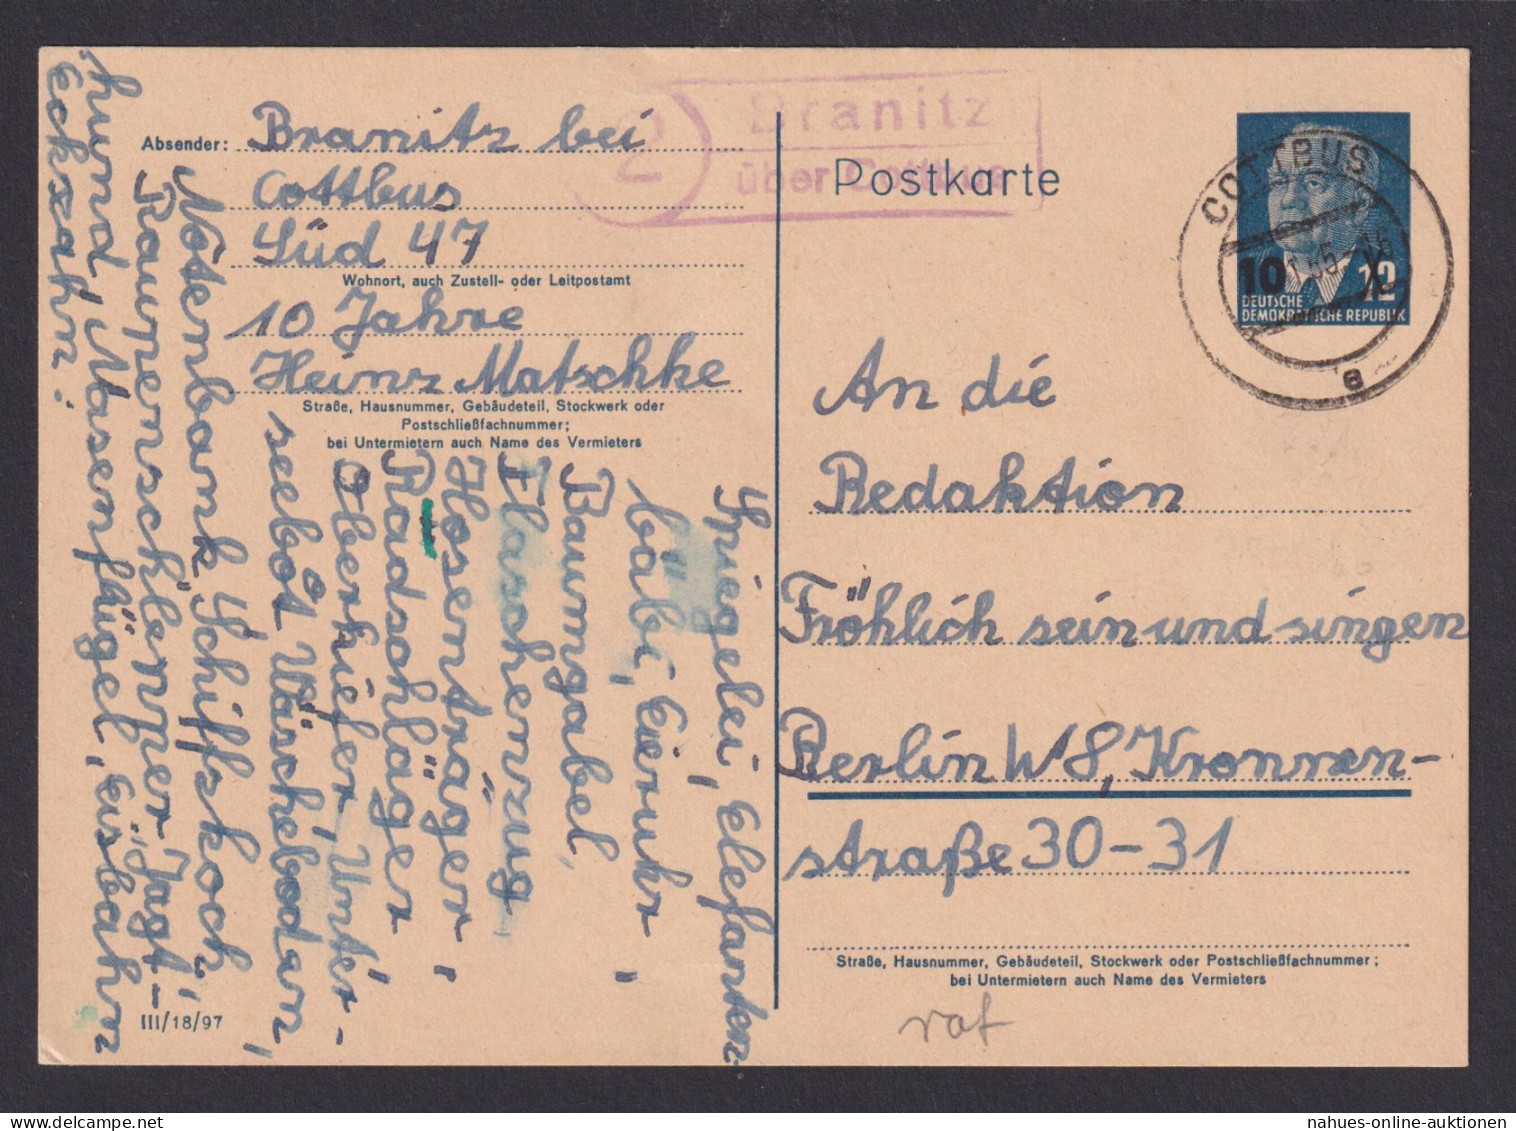 2
Branitz
über Cottbus
Absender: Branitz bei
Cottbus
Süd 47
Wohnort, auch Zustell- oder Leitpostamt
10 Jahre
Heinz Matschke
Straße, Hausnummer, Gebäudeteil, Stockwerk oder
Postschließfachnummer;
bei Untermietern auch Name des Vermieters
Postkarte
COTTBUS
10
12
DEUTSCHE
DEMOKRATISCHE REPUBLIK
An die
Redaktion
Fröhlich sein und singen
Berlin W8, Kronnen-
straße 30-31
Straße, Hausnummer, Gebäudeteil, Stockwerk oder Postschließfachnummer;
bei Untermietern auch Name des Vermieters
Spiegelei, Elefanten
bäbi, Eieruhr,
Baumgabel,
Flaschenzug,
Hosenträger,
Radschläger
Oberkiefer, Unter-
seeboot Wäscheboden,
Notenbank Schiffskoch,
Raupenschlepper Jagt-
hund, Nasenflügel, Eisbahn
Eckzahn.
III/18/97
rat
nahues-online-auktionen